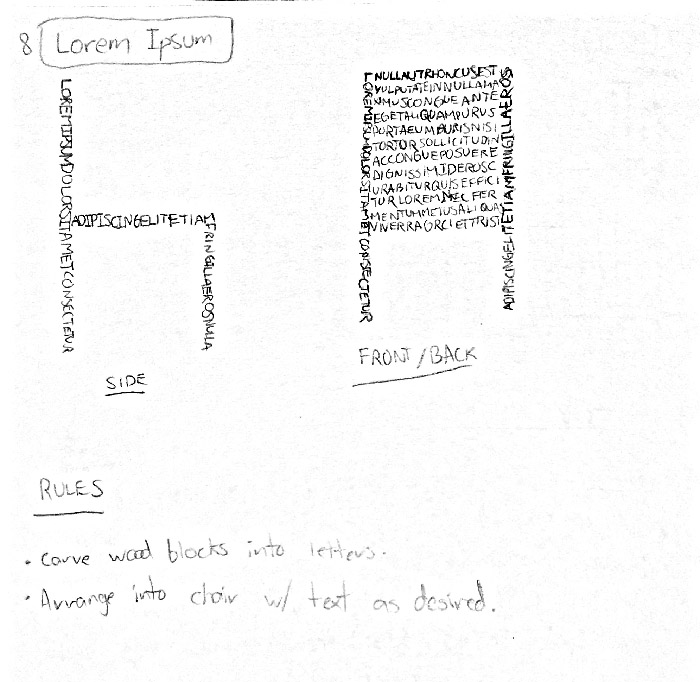 8 Lorem Ipsum
LOREMIPSUMDOLORSITAMETCONSECTETUR
ADIPISCINGELITETIAM
FRINGILLAEROSNULLA
SIDE
LOREMIPSUMDOLORSITAMETCONSECTETUR
NULLAUTRHONCUSEST
VULPUTATEINNULLAMA
INMUSCONGUEANTE
EGETALIQUAMPURUS
PORTAEUMAURISNISI
TORTORSOLLICITUDIN
ACCONGUEPOSUERE
DIGNISSIMIDEROSC
URABITURQUISEFFICI
TURLOREMNECFER
MENTUMMETUSALIQUA
VIVERRAORCIETTRISTI
ADIPISCINGELITETIAMFRINGILLAEROS
FRONT/BACK
RULES
• Carve wood blocks into letters.
• Arrange into chair w/ text as desired.